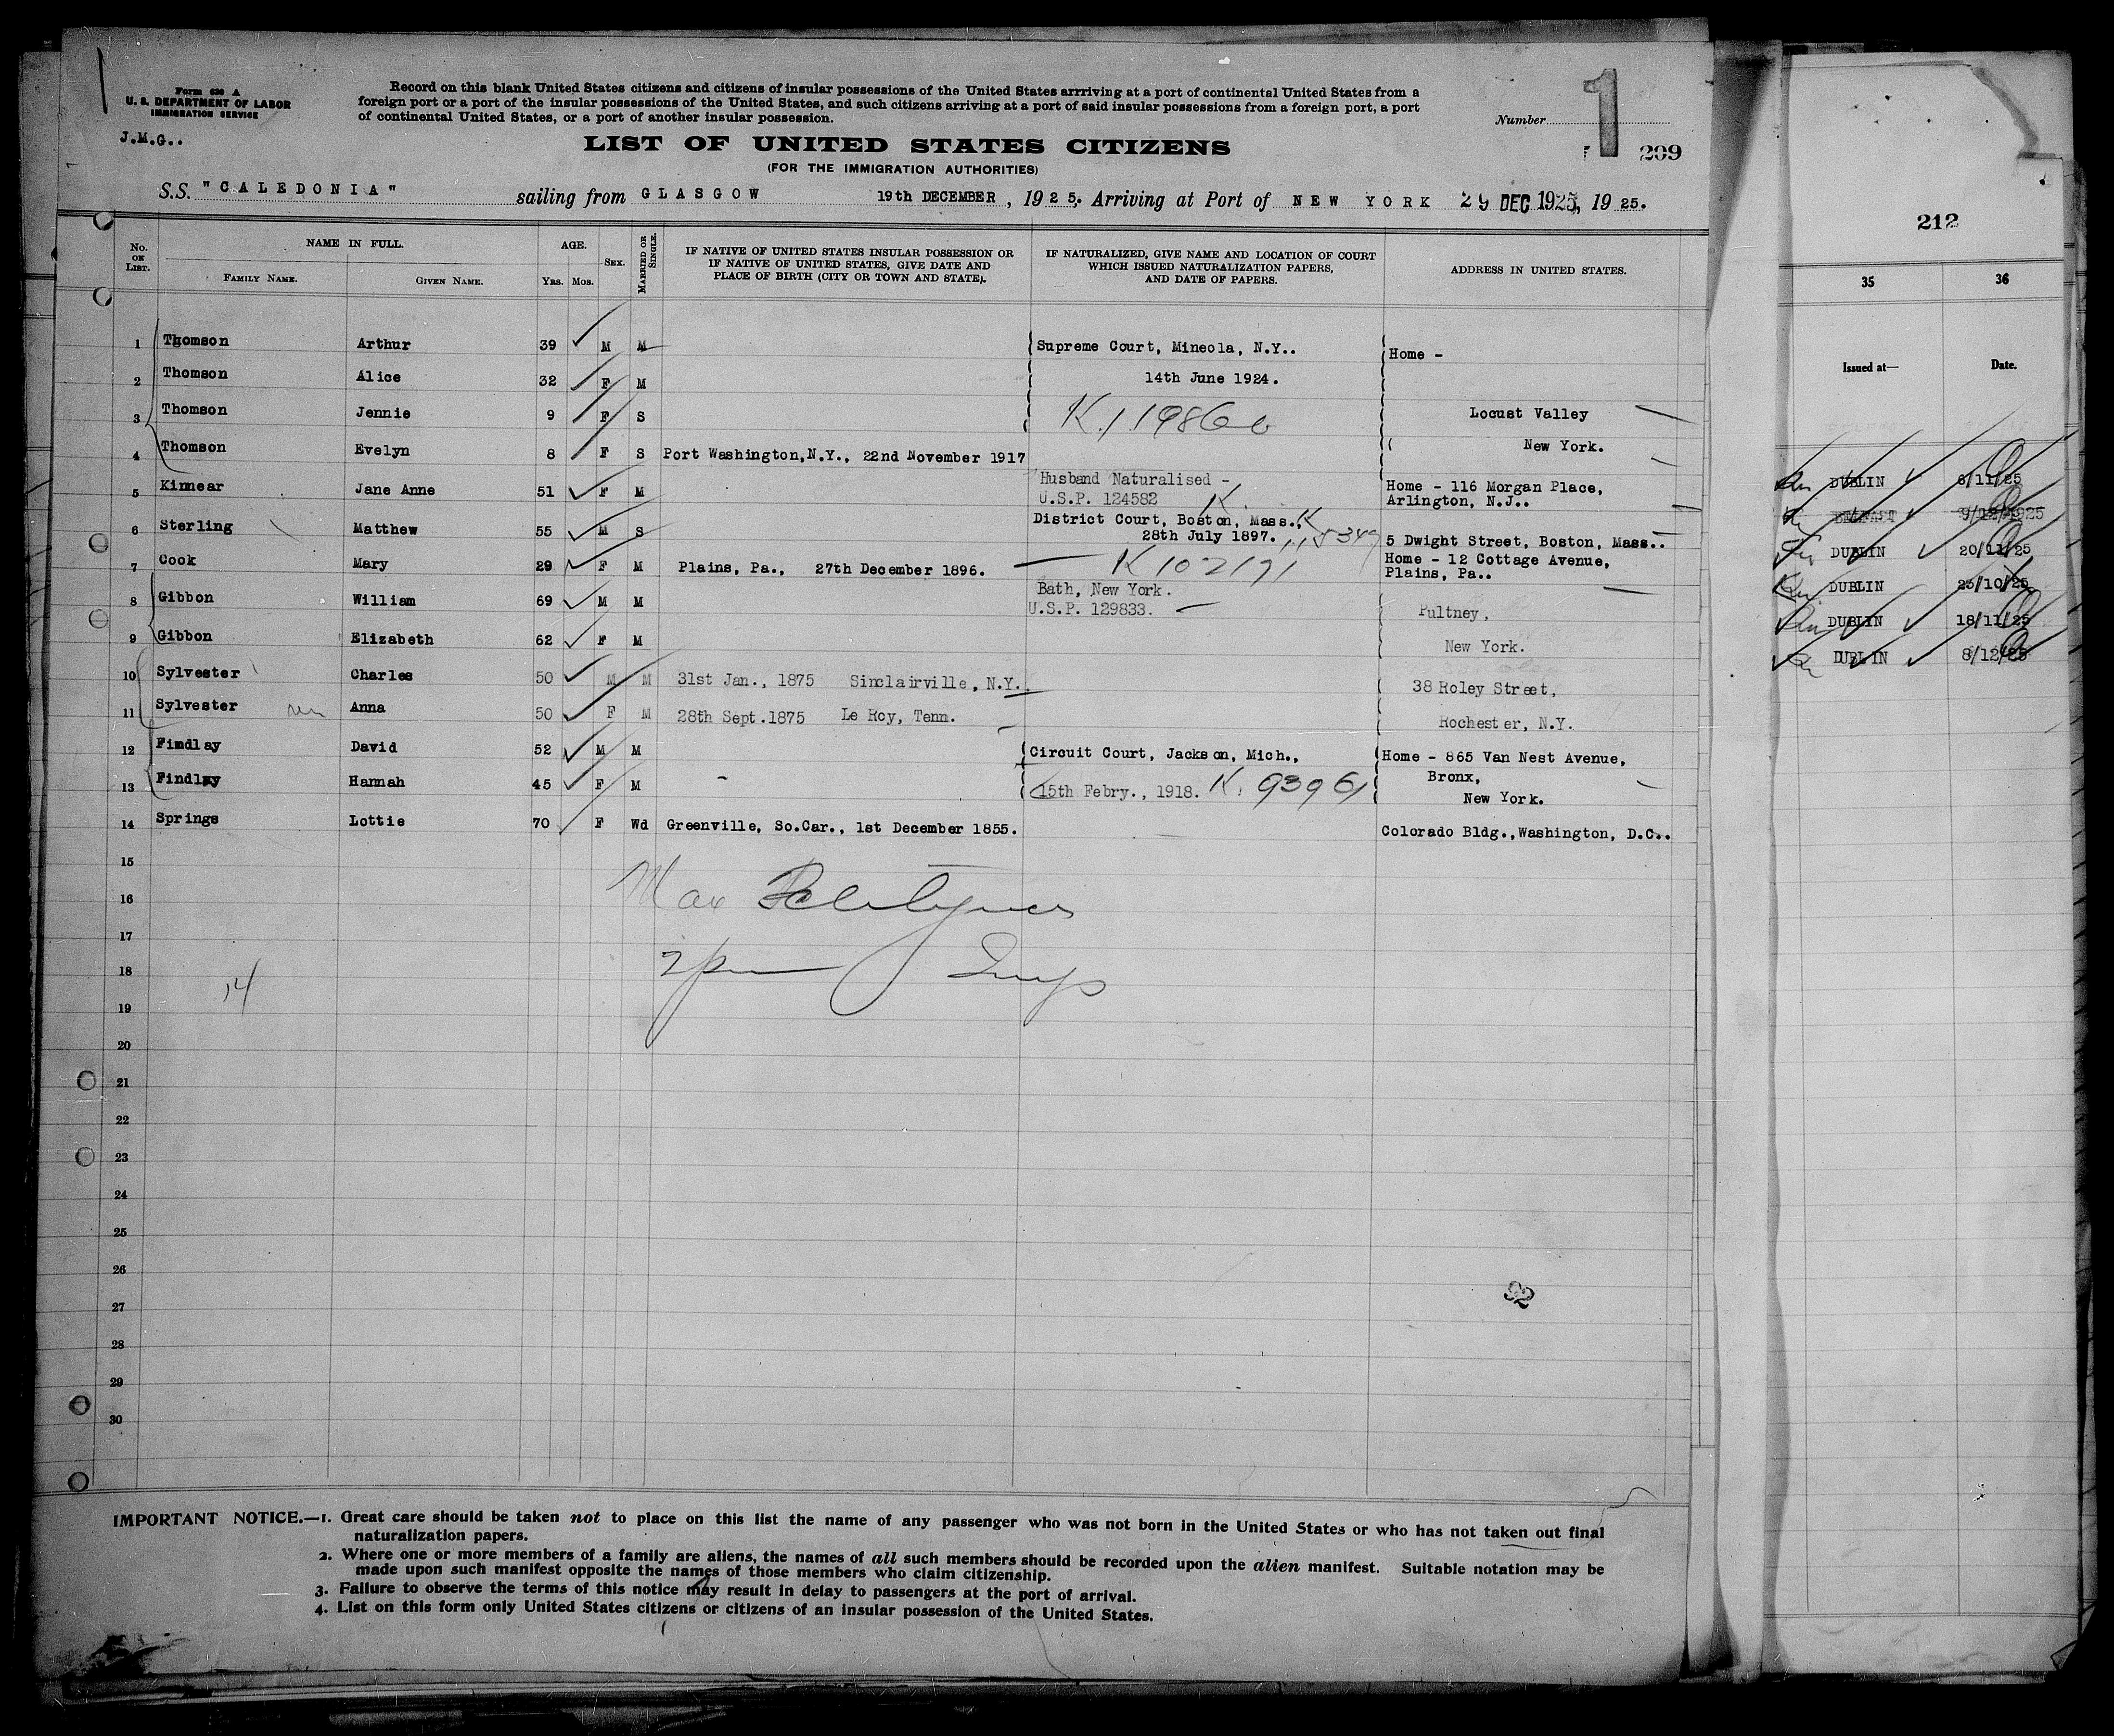 Form 630 A
U. S. DEPARTMENT OF LABOR
IMMIGRATION SERVICE
J.M.G..
Record on this blank United States citizens and citizens of insular possessions of the United States arrriving at a port of continental United States from a
foreign port or a port of the insular possessions of the United States, and such citizens arriving at a port of said insular possessions from a foreign port, a port
of continental United States, or a port of another insular possession.
Number 1
LIST OF UNITED STATES CITIZENS
209
(FOR THE IMMIGRATION AUTHORITIES)
S.S. "CALEDONIA" sailing from GLASGOW 19th DECEMBER, 1925. Arriving at Port of NEW YORK 29 DEC 1925, 1925.
No. ON LIST. NAME IN FULL. FAMILY NAME. GIVEN NAME. AGE. YRS. MOS. SEX. MARRIED OR SINGLE. IF NATIVE OF UNITED STATES INSULAR POSSESSION OR IF NATIVE OF UNITED STATES, GIVE DATE AND PLACE OF BIRTH (CITY OR TOWN AND STATE). IF NATURALIZED, GIVE NAME AND LOCATION OF COURT WHICH ISSUED NATURALIZATION PAPERS, AND DATE OF PAPERS. ADDRESS IN UNITED STATES.
1 Thomson Arthur 39 M M Supreme Court, Mineola, N.Y.. Home -
2 Thomson Alice 32 F M 14th June 1924.
3 Thomson Jennie 9 F S K.119860 Locust Valley
4 Thomson Evelyn 8 F S Port Washington,N.Y., 22nd November 1917 New York.
5 Kinnear Jane Anne 51 F M Husband Naturalised - U.S.P. 124582 K. Home - 116 Morgan Place, Arlington, N.J..
6 Sterling Matthew 55 M S District Court, Boston, Mass., 28th July 1897. K 5 Dwight Street, Boston, Mass..
7 Cook Mary 29 F M Plains, Pa., 27th December 1896. K 102171 Home - 12 Cottage Avenue, Plains, Pa..
8 Gibbon William 69 M M Bath, New York. U.S.P. 129833. Pultney,
9 Gibbon Elizabeth 62 F M New York.
10 Sylvester Charles 50 M M 31st Jan., 1875 Sinclairville, N.Y. 38 Roley Street,
11 Sylvester Anna 50 F M 28th Sept.1875 Le Roy, Tenn. Rochester, N.Y.
12 Findlay David 52 M M Circuit Court, Jackson, Mich., Home - 865 Van Nest Avenue,
Bronx,
13 Findlay Hannah 45 F M 15th Febry., 1918. K. 93961 New York.
14 Springs Lottie 70 F Wd Greenville, So.Car., 1st December 1855. Colorado Bldg.,Washington, D.C..
15
16 Max
17
18 14
19
20
21
22
23
24
25
26
27 92
28
29
30
IMPORTANT NOTICE.—1. Great care should be taken not to place on this list the name of any passenger who was not born in the United States or who has not taken out final
naturalization papers.
2. Where one or more members of a family are aliens, the names of all such members should be recorded upon the alien manifest. Suitable notation may be
made upon such manifest opposite the names of those members who claim citizenship.
3. Failure to observe the terms of this notice may result in delay to passengers at the port of arrival.
4. List on this form only United States citizens or citizens of an insular possession of the United States.
212
35 36
Issued at— Date.
DUBLIN 6/11/25
BELFAST 9/12/1925
DUBLIN 20/11/25
DUBLIN 23/10/25
DUBLIN 18/11/25
DUBLIN 8/12/25